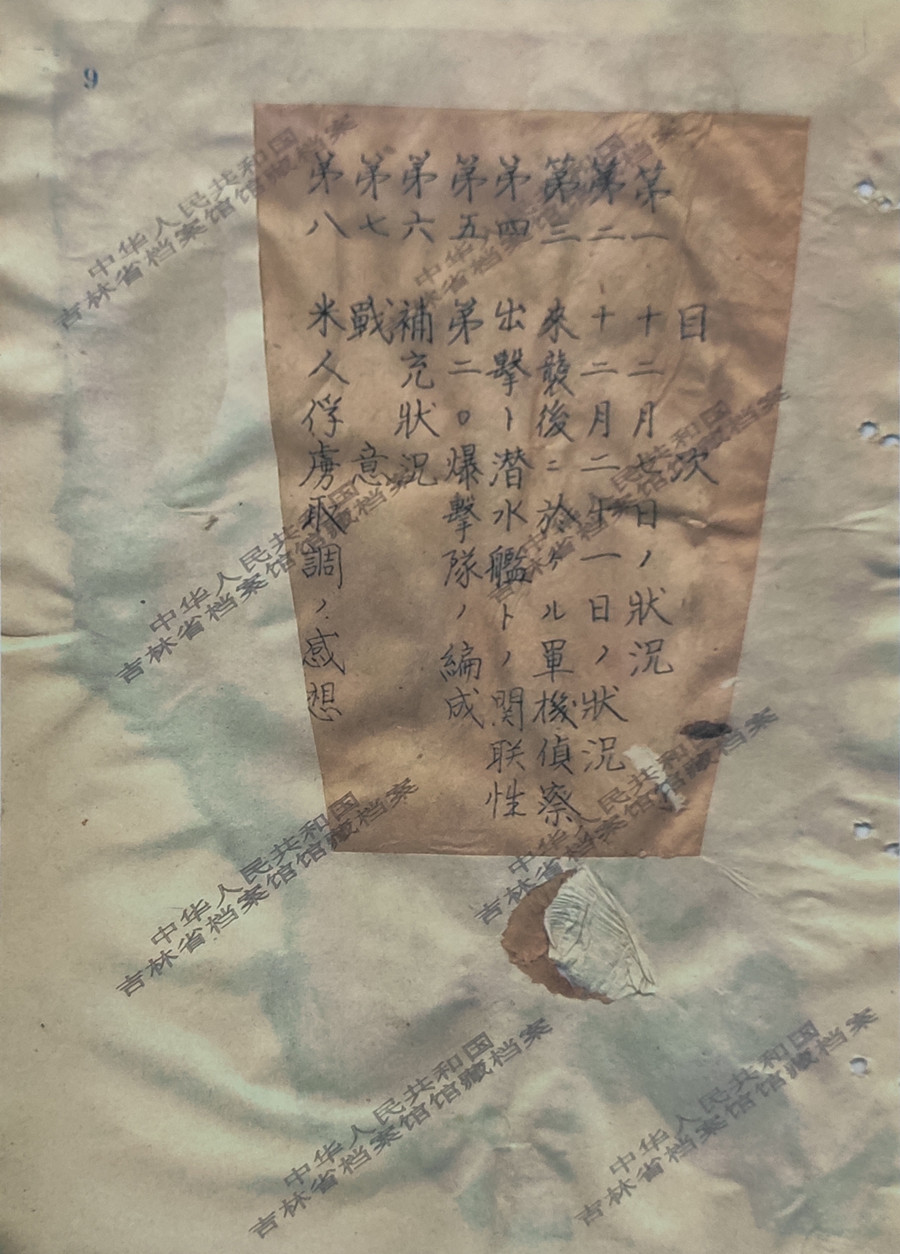 9
目次
第一 十二月七日ノ狀況
第二 十二月二十一日ノ狀況
第三 來襲後ニ於ケル單機偵察
第四 出擊ト潜水艦トノ関联性
第五 第二〇爆擊隊ノ編成
第六 補充狀況
第七 戰意
第八 米人俘虜取調ノ感想
中华人民共和国
吉林省档案馆馆藏档案
中华人民共和国
吉林省档案馆馆藏档案
中华人民共和国
吉林省档案馆馆藏档案
中华人民共和国
吉林省档案馆馆藏档案
中华人民共和国
吉林省档案馆馆藏档案
中华人民共和国
吉林省档案馆馆藏档案
中华人民共和国
吉林省档案馆馆藏档案
中华人民共和国
吉林省档案馆馆藏档案